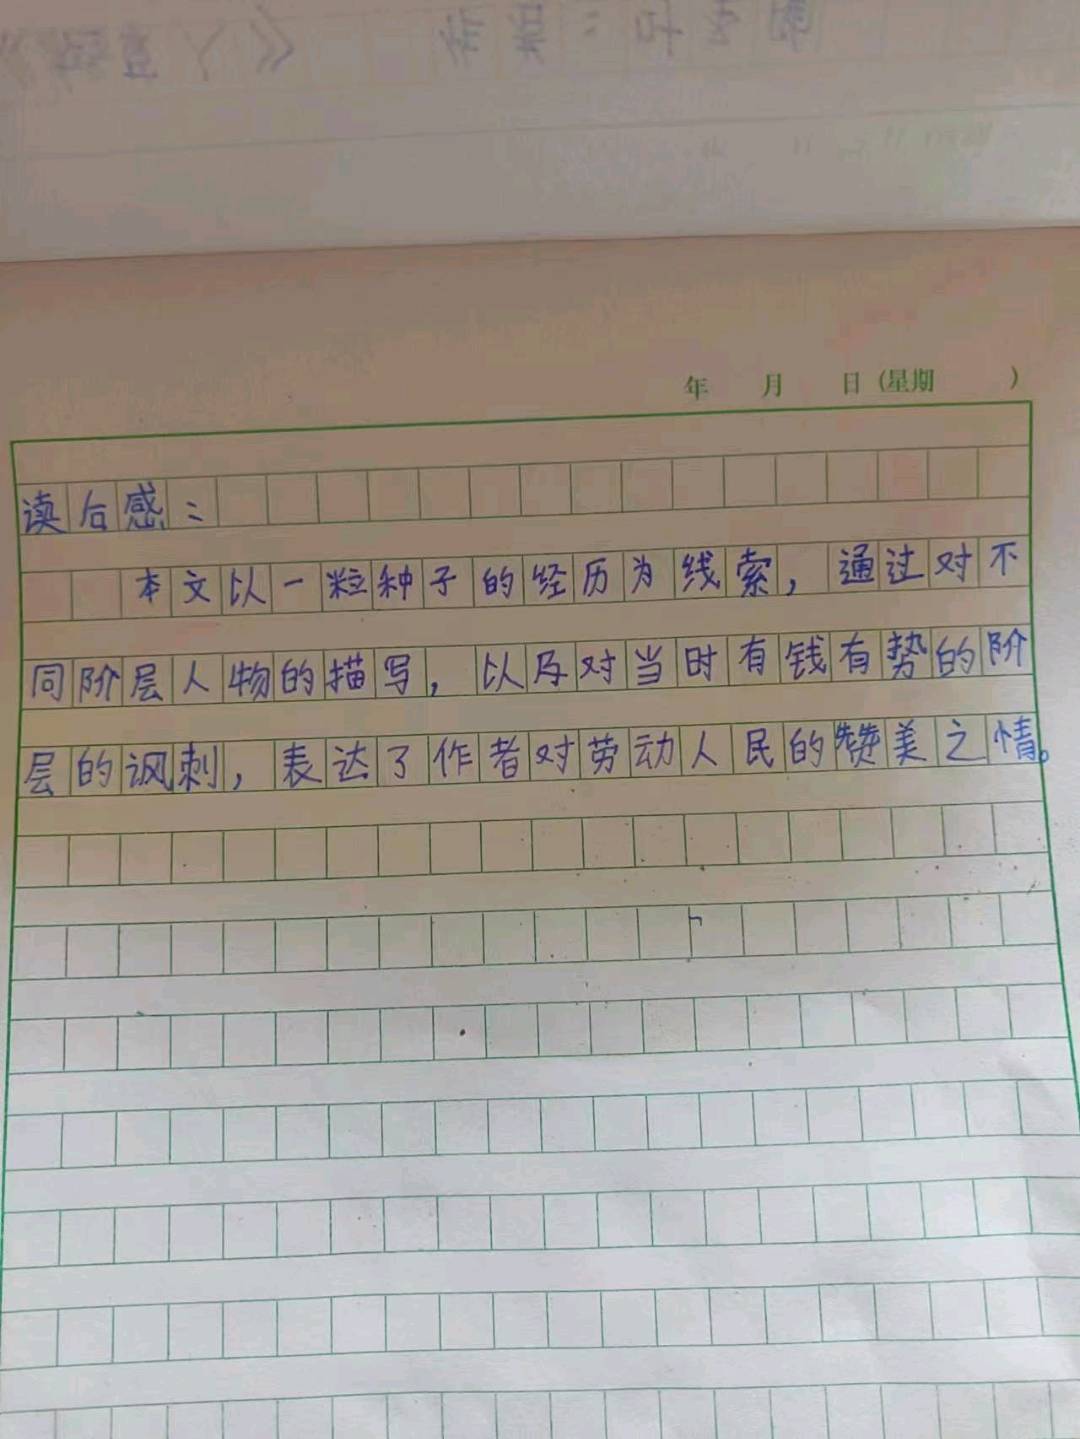 年 月 日 (星期 )
读后感：
本文以一粒种子的经历为线索，通过对不
同阶层人物的描写，以及对当时有钱有势的阶
层的讽刺，表达了作者对劳动人民的赞美之情。